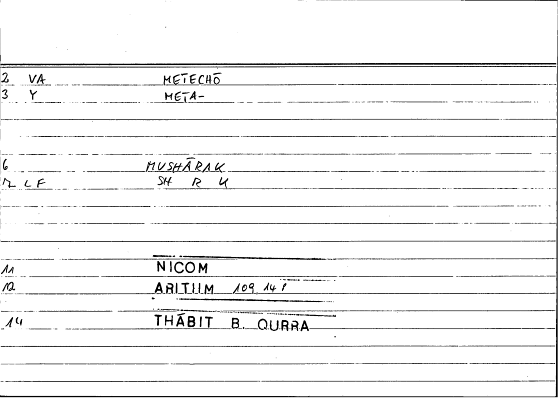 2 VA METECHŌ
3 Y META-
6 MUSHĀRAK
LF SH R K
11 NICOM
12 ARITIIM 109, 14
14 THĀBIT B. QURRA